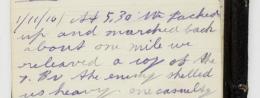 1/11/16/ At 5,30 We Packed
up and marched back
about one mile we
releaved a coy of the
Bn. The enemy shelled
us heavy one casualty